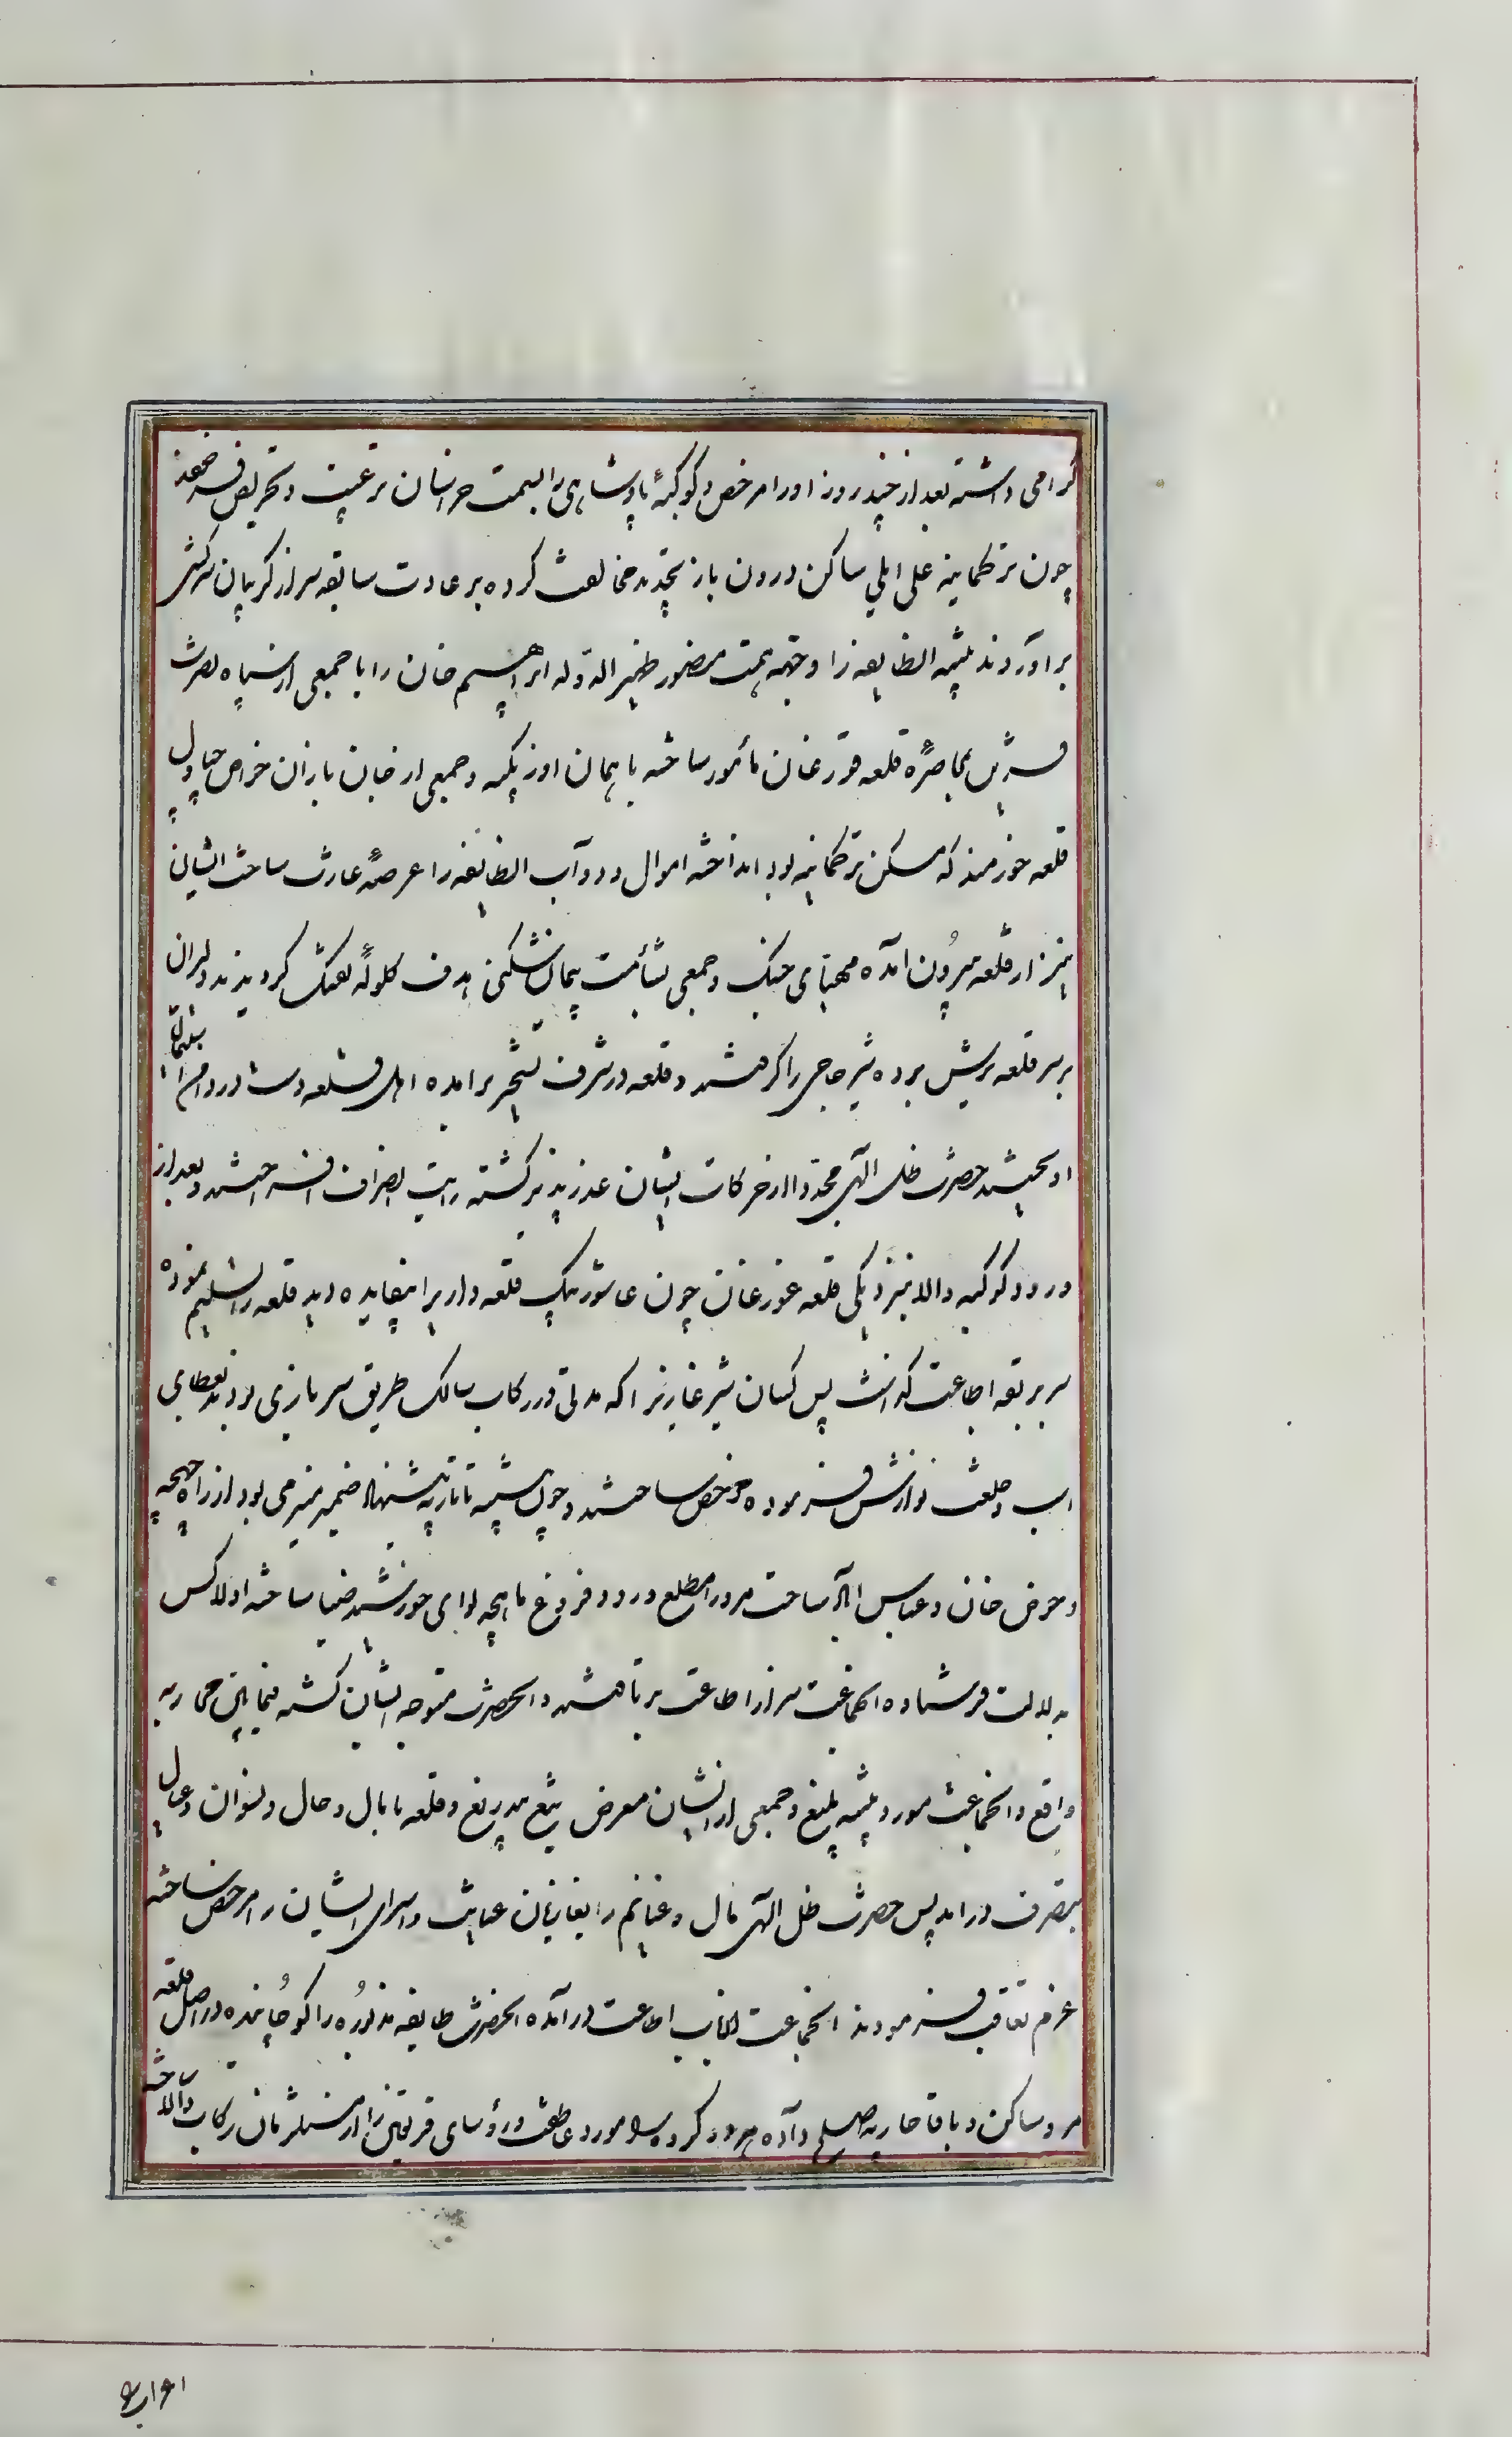 گرامی داشته بعد از چند روز او را مرخص و کوکبهٔ پادشاهی را بسمت خراسان ترغیب و تحریص
چون ترکمانیه علی ایلی ساکن درون باز تجدید مخالفت کرده بر عادت سابقه سر از گریبان سرکشی
برآوردند تنبیه الطایفه را وجهه همت ظهیر الدوله ابراهیم خان را با جمعی از سپاه نصرت
قرین بمحاصرهٔ قلعه قوزغان مأمور ساخته با همان اوزبکیه و جمعی از جان بازان خواص چپاول
قلعه خورمند که مسکن ترکمانیه بود انداخته اموال و دوآب الطایفه را عرصهٔ غارت ساخت ایشان
نیز از قلعه بیرون آمده مهیای جنک و جمعی بشأمت پیمان شکنی هدف کلولهٔ تفنک کردیدند دلیران
بر سر قلعه یورش برده شیر حاجی را گرفتند و قلعه در شرف تسخیر برآمده اهل قلعه دست در دامن
آویختند حضرت ظل الهی مجددا از حرکات ایشان عذرپذیر کشته رایت انصراف افراختند و بعد از
ورود کوکبه والا بنزدیکی قلعه غوزغان چون عاشور بیک قلعه داری را بیفایده دید قلعه را تسلیم نموده
سر بربقه اطاعت کذاشت پس کسان شیرغازی را که مدتی در رکاب سالک طریق سربازی بودند بعطای
اسب و خلعت نوازش فرموده مرخص ساختند و چون تنبیه تاتاریه پیشنهاد ضمیر منیر می بود از راه چهچه
و حوض خان و عباس اباد ساحت مرو را مطلع ورود و فروغ ماهچه لوای خورشید ضیا ساخته اولا کس
بدلالت فرستاده انجماعت سر از اطاعت برتافتند و انحضرت متوجه ایشان کشته فیمابین محاربه
واقع و انجماعت مورد تنبیه بلیغ و جمعی از ایشان معرض تیغ بیدریغ و قلعه با مال و حال و نسوان و عیال
بتصرف درامد پس حضرت ظل الهی مال و غنایم را بغازیان عنایت و اسرای ایشان را مرخص ساخته
عزم تعاقب فرمودند انجماعت از باب اطاعت درآمده انحضرت طایفه مذبوره را کوچانیده در اصل قلعه
مرو ساکن و با قاجاریه صلح داده هر دو کروه را مورد عاطفت و رؤسای فریقین را از ملتزمان رکاب والا ساخته